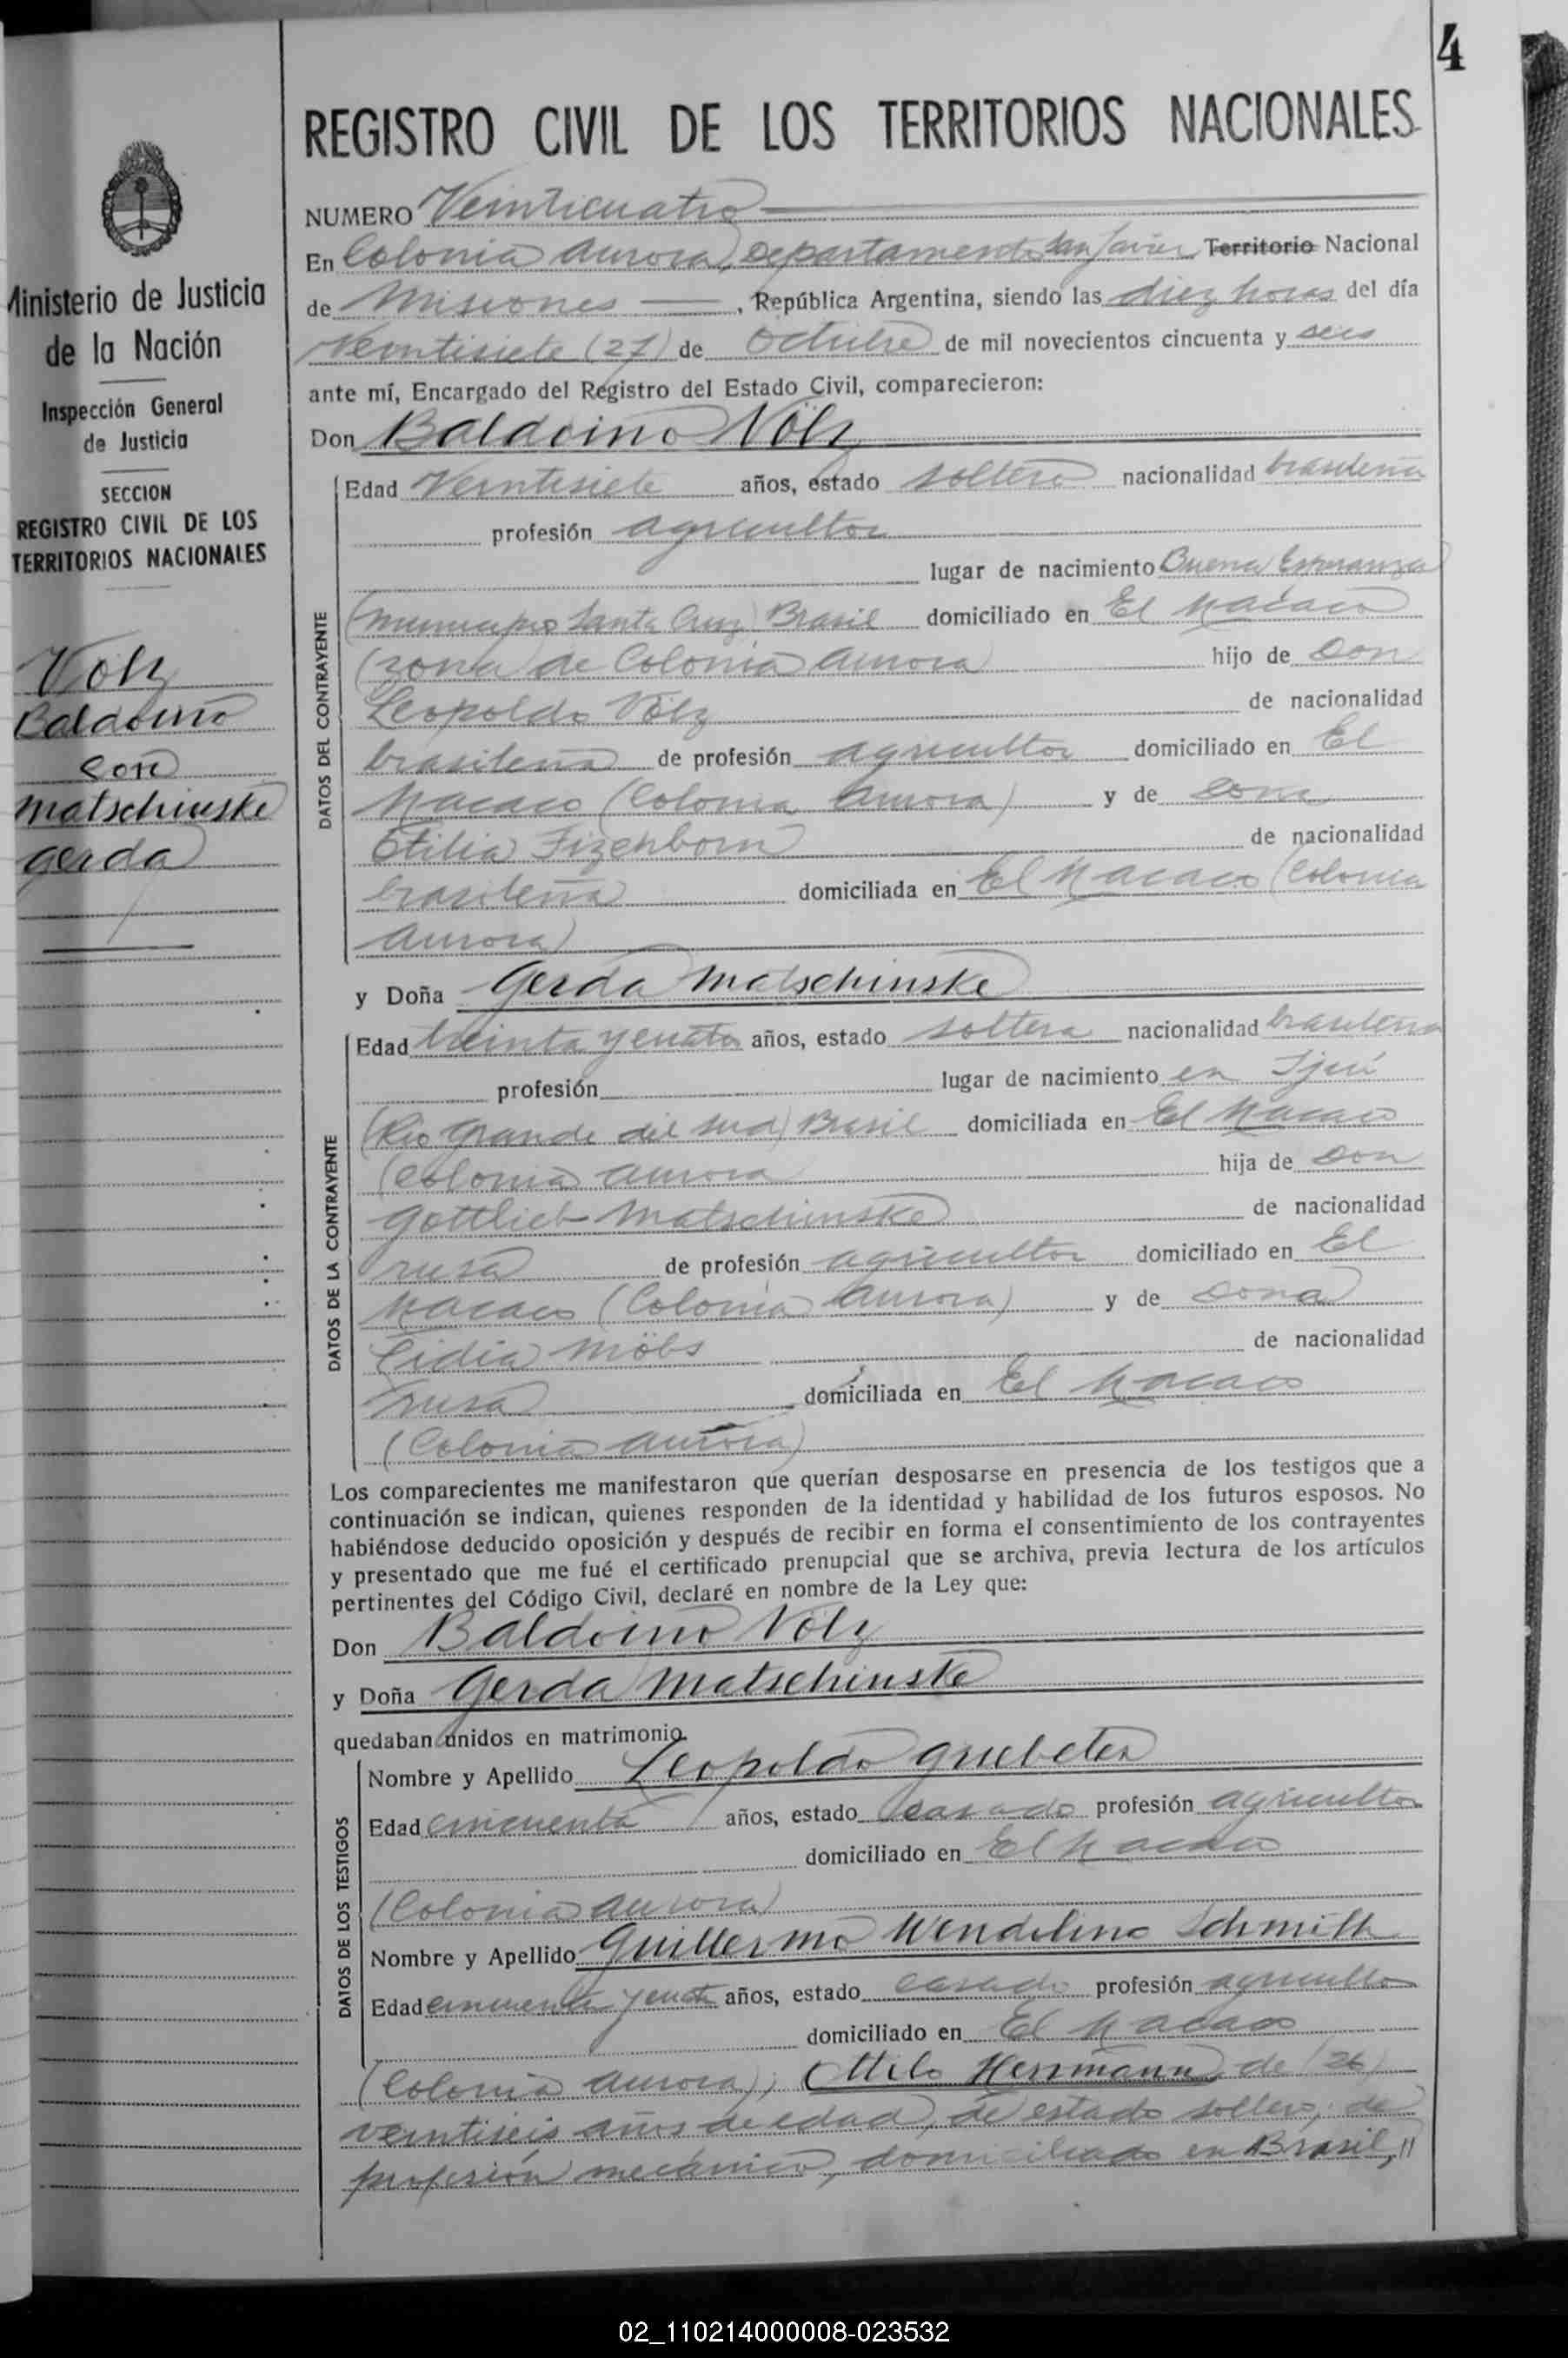 4
REGISTRO CIVIL DE LOS TERRITORIOS NACIONALES
Ministerio de Justicia
de la Nación
Inspección General
de Justicia
SECCION
REGISTRO CIVIL DE LOS
TERRITORIOS NACIONALES
Völz
Baldoino
con
Matschinske
Gerda
NUMERO Veinticuatro
En Colonia Aurora, Departamento San Javier Territorio Nacional
de Misiones, República Argentina, siendo las diez horas del día
Veintisiete (27) de Octubre de mil novecientos cincuenta y seis
ante mí, Encargado del Registro del Estado Civil, comparecieron:
Don Baldoino Völz
DATOS DEL CONTRAYENTE
Edad Veintisiete años, estado soltero nacionalidad brasileña
profesión agricultor
lugar de nacimiento Buena Esperanza
(Municipio Santa Cruz) Brasil domiciliado en El Macaco
(zona de Colonia Aurora) hijo de Don
Leopoldo Völz de nacionalidad
brasileña de profesión agricultor domiciliado en El
Macaco (Colonia Aurora) y de Doña
Otilia Fizenborn de nacionalidad
brasileña domiciliada en El Macaco (Colonia
Aurora)
y Doña Gerda Matschinske
DATOS DE LA CONTRAYENTE
Edad treinta y cuatro años, estado soltera nacionalidad brasileña
profesión lugar de nacimiento en Ijuí
(Rio Grande del Sud) Brasil domiciliada en El Macaco
(Colonia Aurora hija de Don
Gottlieb Matschinske de nacionalidad
rusa de profesión agricultor domiciliado en El
Macaco (Colonia Aurora) y de Doña
Lidia Möbs de nacionalidad
rusa domiciliada en El Macaco
(Colonia Aurora)
Los comparecientes me manifestaron que querían desposarse en presencia de los testigos que a
continuación se indican, quienes responden de la identidad y habilidad de los futuros esposos. No
habiéndose deducido oposición y después de recibir en forma el consentimiento de los contrayentes
y presentado que me fué el certificado prenupcial que se archiva, previa lectura de los artículos
pertinentes del Código Civil, declaré en nombre de la Ley que:
Don Baldoino Völz
y Doña Gerda Matschinske
quedaban unidos en matrimonio.
DATOS DE LOS TESTIGOS
Nombre y Apellido Leopoldo
Edad cincuenta años, estado casado profesión agricultor
domiciliado en El Macaco
(Colonia Aurora)
Nombre y Apellido Guillermo Wendelino Schmitt
Edad cincuenta y cuatro años, estado casado profesión agricultor
domiciliado en El Macaco
(Colonia Aurora); Ottilo Herrmann de (26)
veintiseis años de edad, de estado soltero; de
profesión mecánico, domiciliado en Brasil, //
02_110214000008-023532